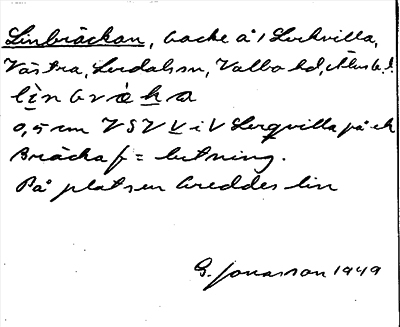 Linbräckan, backe å 1 Lerkvilla,
Västra, Lerdalssn, Valbo hd, Älvsb. l.
li̱nbrä̀ka
0,5 cm VSV V i V Lerqvilla på ek
Bräcka f = lutning.
På platsen breddes lin
G. Jonasson 1949